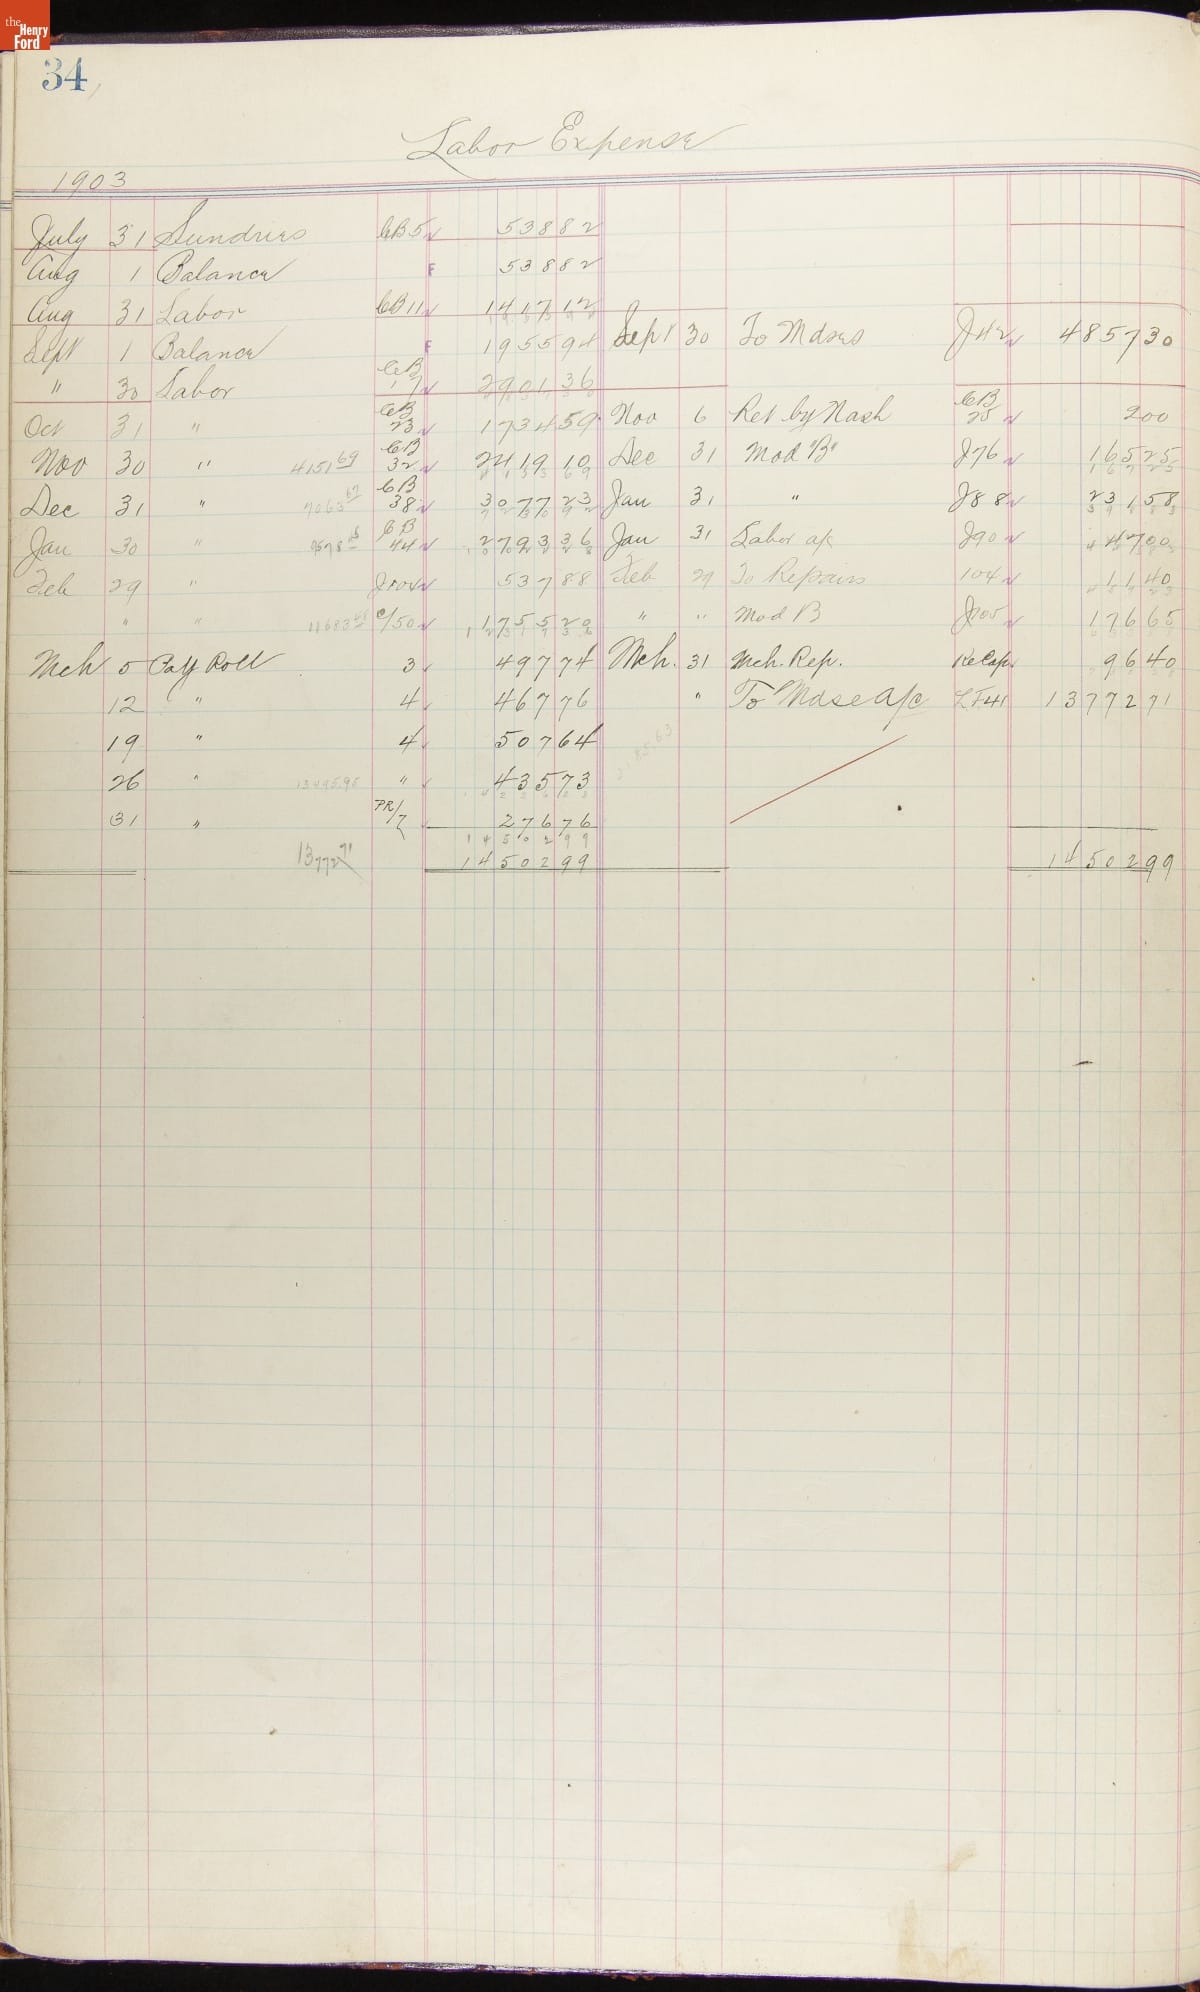 the Henry Ford
34
Labor Expense
1903
July 31 Sundries CB5 538 82
Aug 1 Balance F 538 82
Aug 31 Labor CB11 1417 12
Sept 1 Balance F 1955 94 Sept 30 To Mdses J42 4857 30
" 30 Labor CB 17 2901 36
Oct 31 " CB 23 1734 59 Nov 6 Ret by Nash CB 25 2 00
Nov 30 " 4151 69 CB 32 2419 10 Dec 31 Mod "B" J76 165 25
Dec 31 " 7063 67 CB 38 3077 23 Jan 31 " J88 231 58
Jan 30 " CB 44 2793 36 Jan 31 Labor a/c J90 47 00
Feb 29 " J104 537 88 Feb 29 To Repairs 104 11 40
" " c/50 1755 20 " " Mod B J105 176 65
Mch 5 Pay Roll 3 497 74 Mch. 31 Mch. Rep. ReCap 96 40
12 " 4 467 76 " To Mdse a/c LF41 13772 71
19 " 4 507 64
26 " 13495.95 " 435 73
31 " PR/7 276 76
14502 99
13772 71 14502 99 14502 99